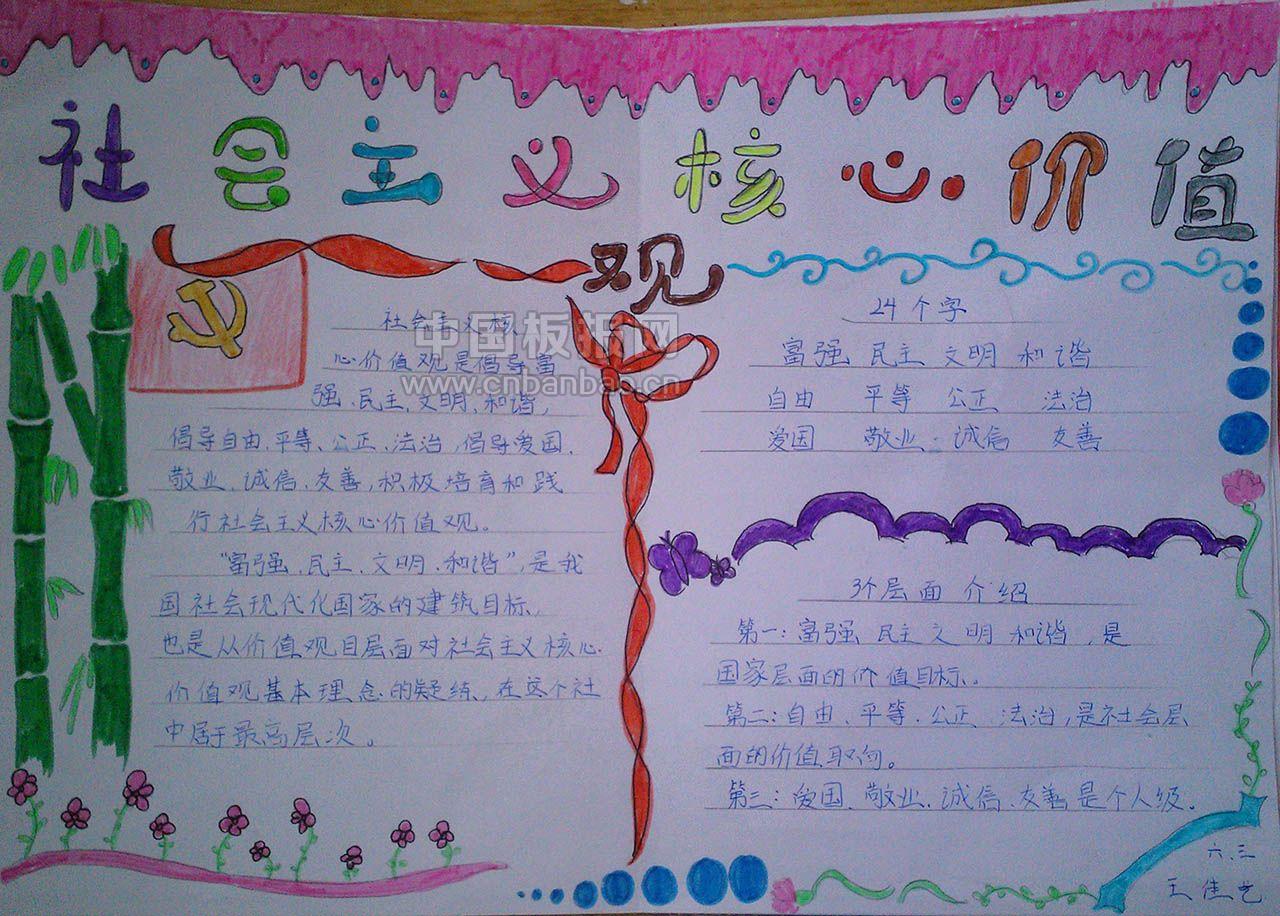 社会主义核心价值
观
社会主义核
心价值观是倡导富
强、民主、文明、和谐，
倡导自由、平等、公正、法治，倡导爱国、
敬业、诚信、友善，积极培育和践
行社会主义核心价值观。
“富强、民主、文明、和谐”，是我
国社会现代化国家的建筑目标，
也是从价值观目层面对社会主义核心
价值观基本理念的凝练，在这个社
中居于最高层次。
24个字
富强 民主 文明 和谐
自由 平等 公正 法治
爱国 敬业 诚信 友善
3个层面介绍
第一：富强 民主 文明 和谐，是
国家层面的价值目标。
第二：自由、平等、公正、法治，是社会层
面的价值取向。
第三：爱国、敬业、诚信、友善是个人级。
六.三
王佳艺
中国板报网
www.cnbanbao.cn